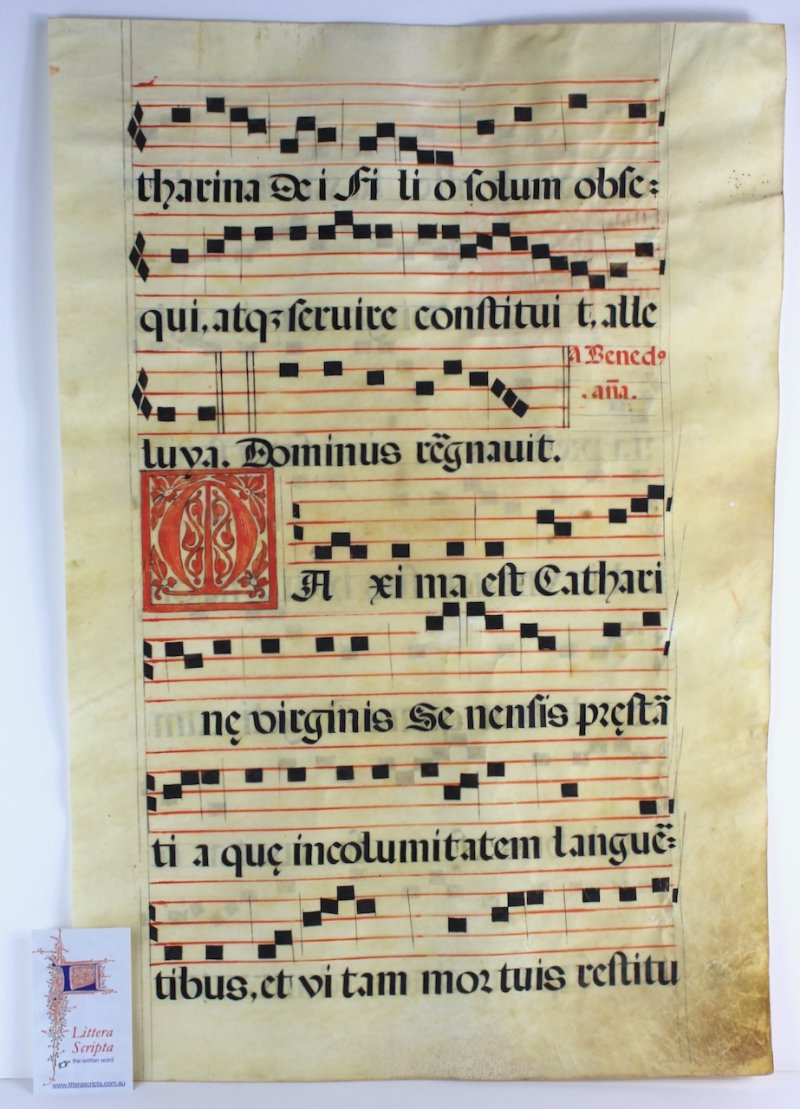 tharina Dei Fi li o solum obse:
qui, atqꝫ seruire constitui t, alle
a Bened⁹
.an̄a.
luya. Dominus reg̃nauit.
M A xi ma est Cathari
nę virginis Se nensis pręstā
ti a quę incolumitatem languē:
tibus, et vi tam moꝛ tuis restitu
Littera
Scripta
the written word
www.litterascripta.com.au